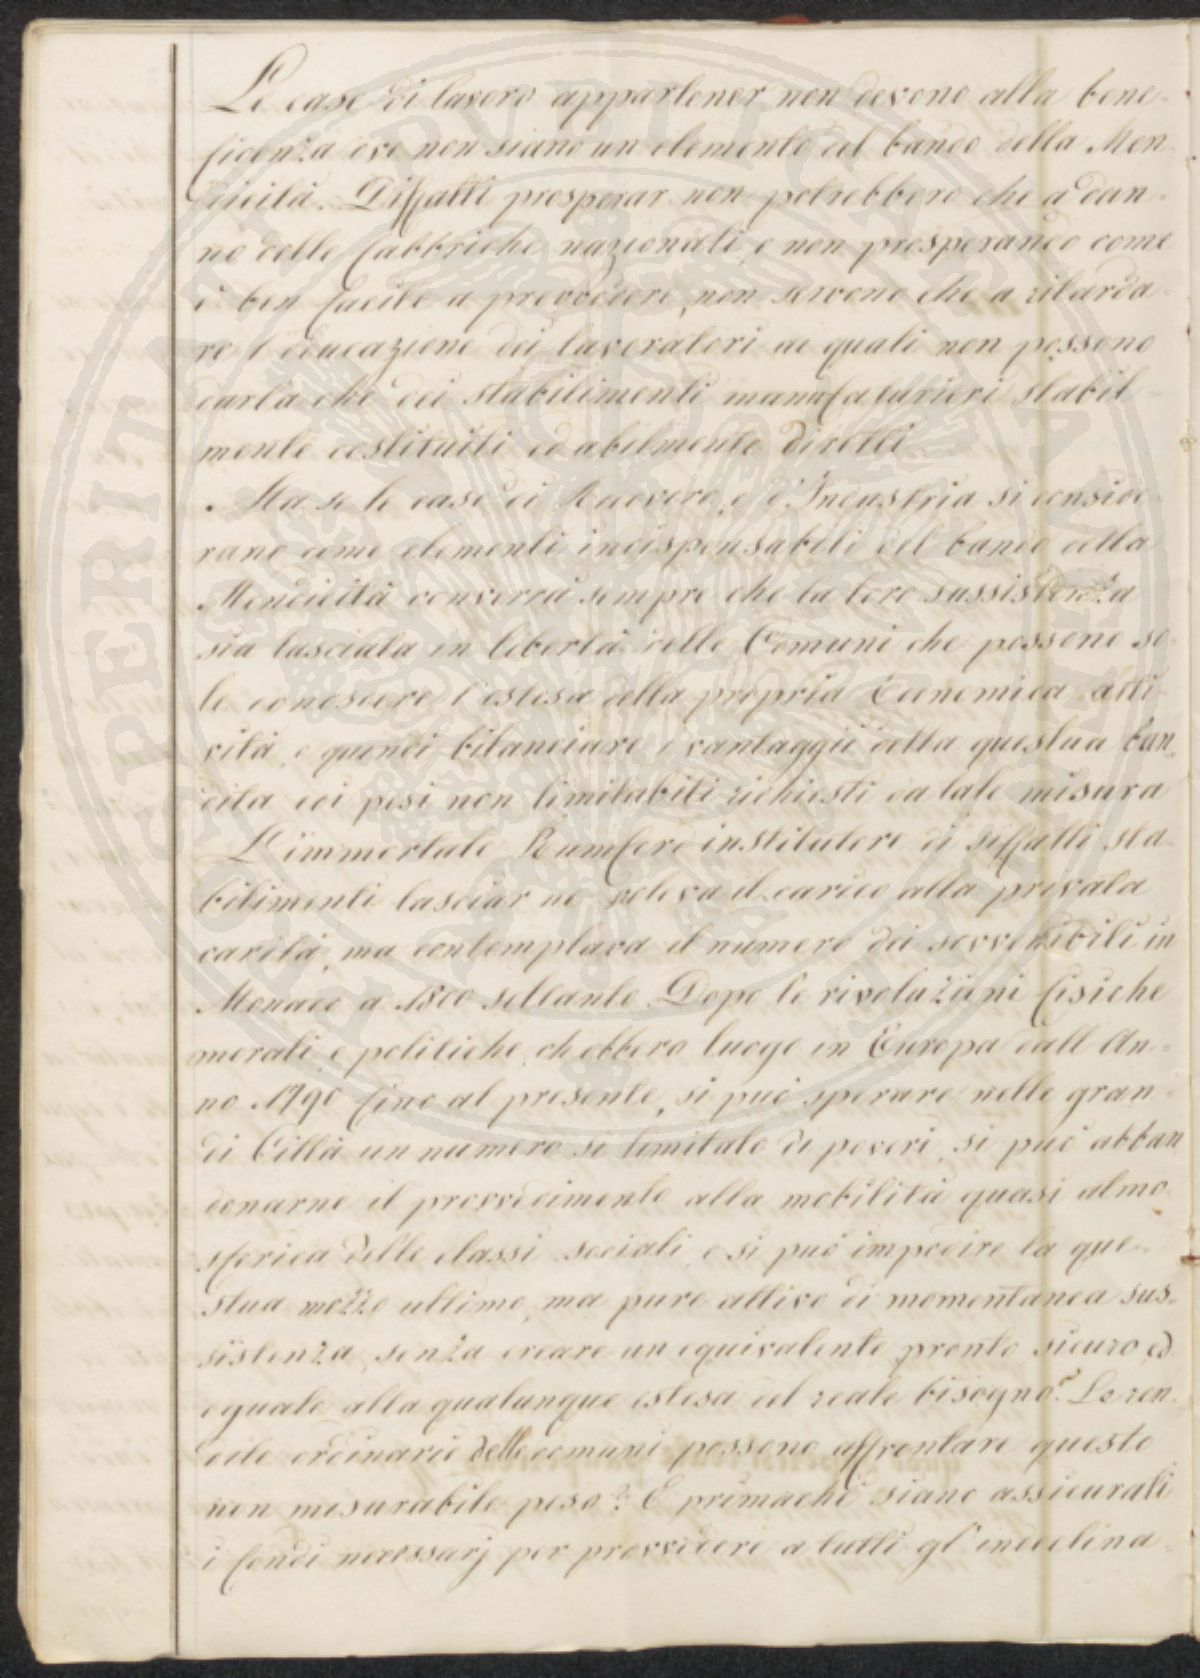 Le case di lavoro appartener non devono alla bene-
ficenza ove non siano un elemento del bando della Men-
dicità. Diffatti prosperar non potrebbero che a dan-
no delle fabbriche nazionali, e non prosperando come
è ben facile a prevvedere, non servono che a ritarda-
re l'educazione dei lavoratori ai quali non possono
darla che dei stabilimenti manufatturieri stabil-
mente costituiti ed abilmente diretti
Ma se le case di Ricovero, e d'Industria si conside-
rano come elementi indispensabili del bando della
Mendicità converrà sempre che la loro sussistenza
sia lasciata in libertà delle Comuni che possono so-
le conoscere l'estesa della propria Economica atti-
vità, e quindi bilanciare i vantaggii della questua ban-
dita coi pesi non limitabili richiesti da tale misura
L'immortale Rumford institutore di siffatti sta-
bilimenti lasciar ne voleva il carico alla privata
carità, ma contemplava il numero dei sovvenibili in
Monaco a 1800 soltanto. Dopo le rivoluzioni fisiche
morali, e politiche, ch'ebbero luogo in Europa dall'An-
no 1790 fino al presente, si può sperare nelle gran-
di Città un numero sì limitato di poveri, si può abban
donarne il provvedimento alla mobilità quasi atmo-
sferica delle classi sociali, e si può impedire la que-
stua mezzo ultimo, ma pure attivo di momentanea sus-
sistenza, senza creare un equivalente pronto sicuro, ed
eguale alla qualunque estesa del reale bisogno? Le ren-
dite ordinarie delle comuni possono affrontare questo
non misurabile peso? E primachè siano assicurati
i fondi necessarj per provvedere a tutti gl'indeclina-